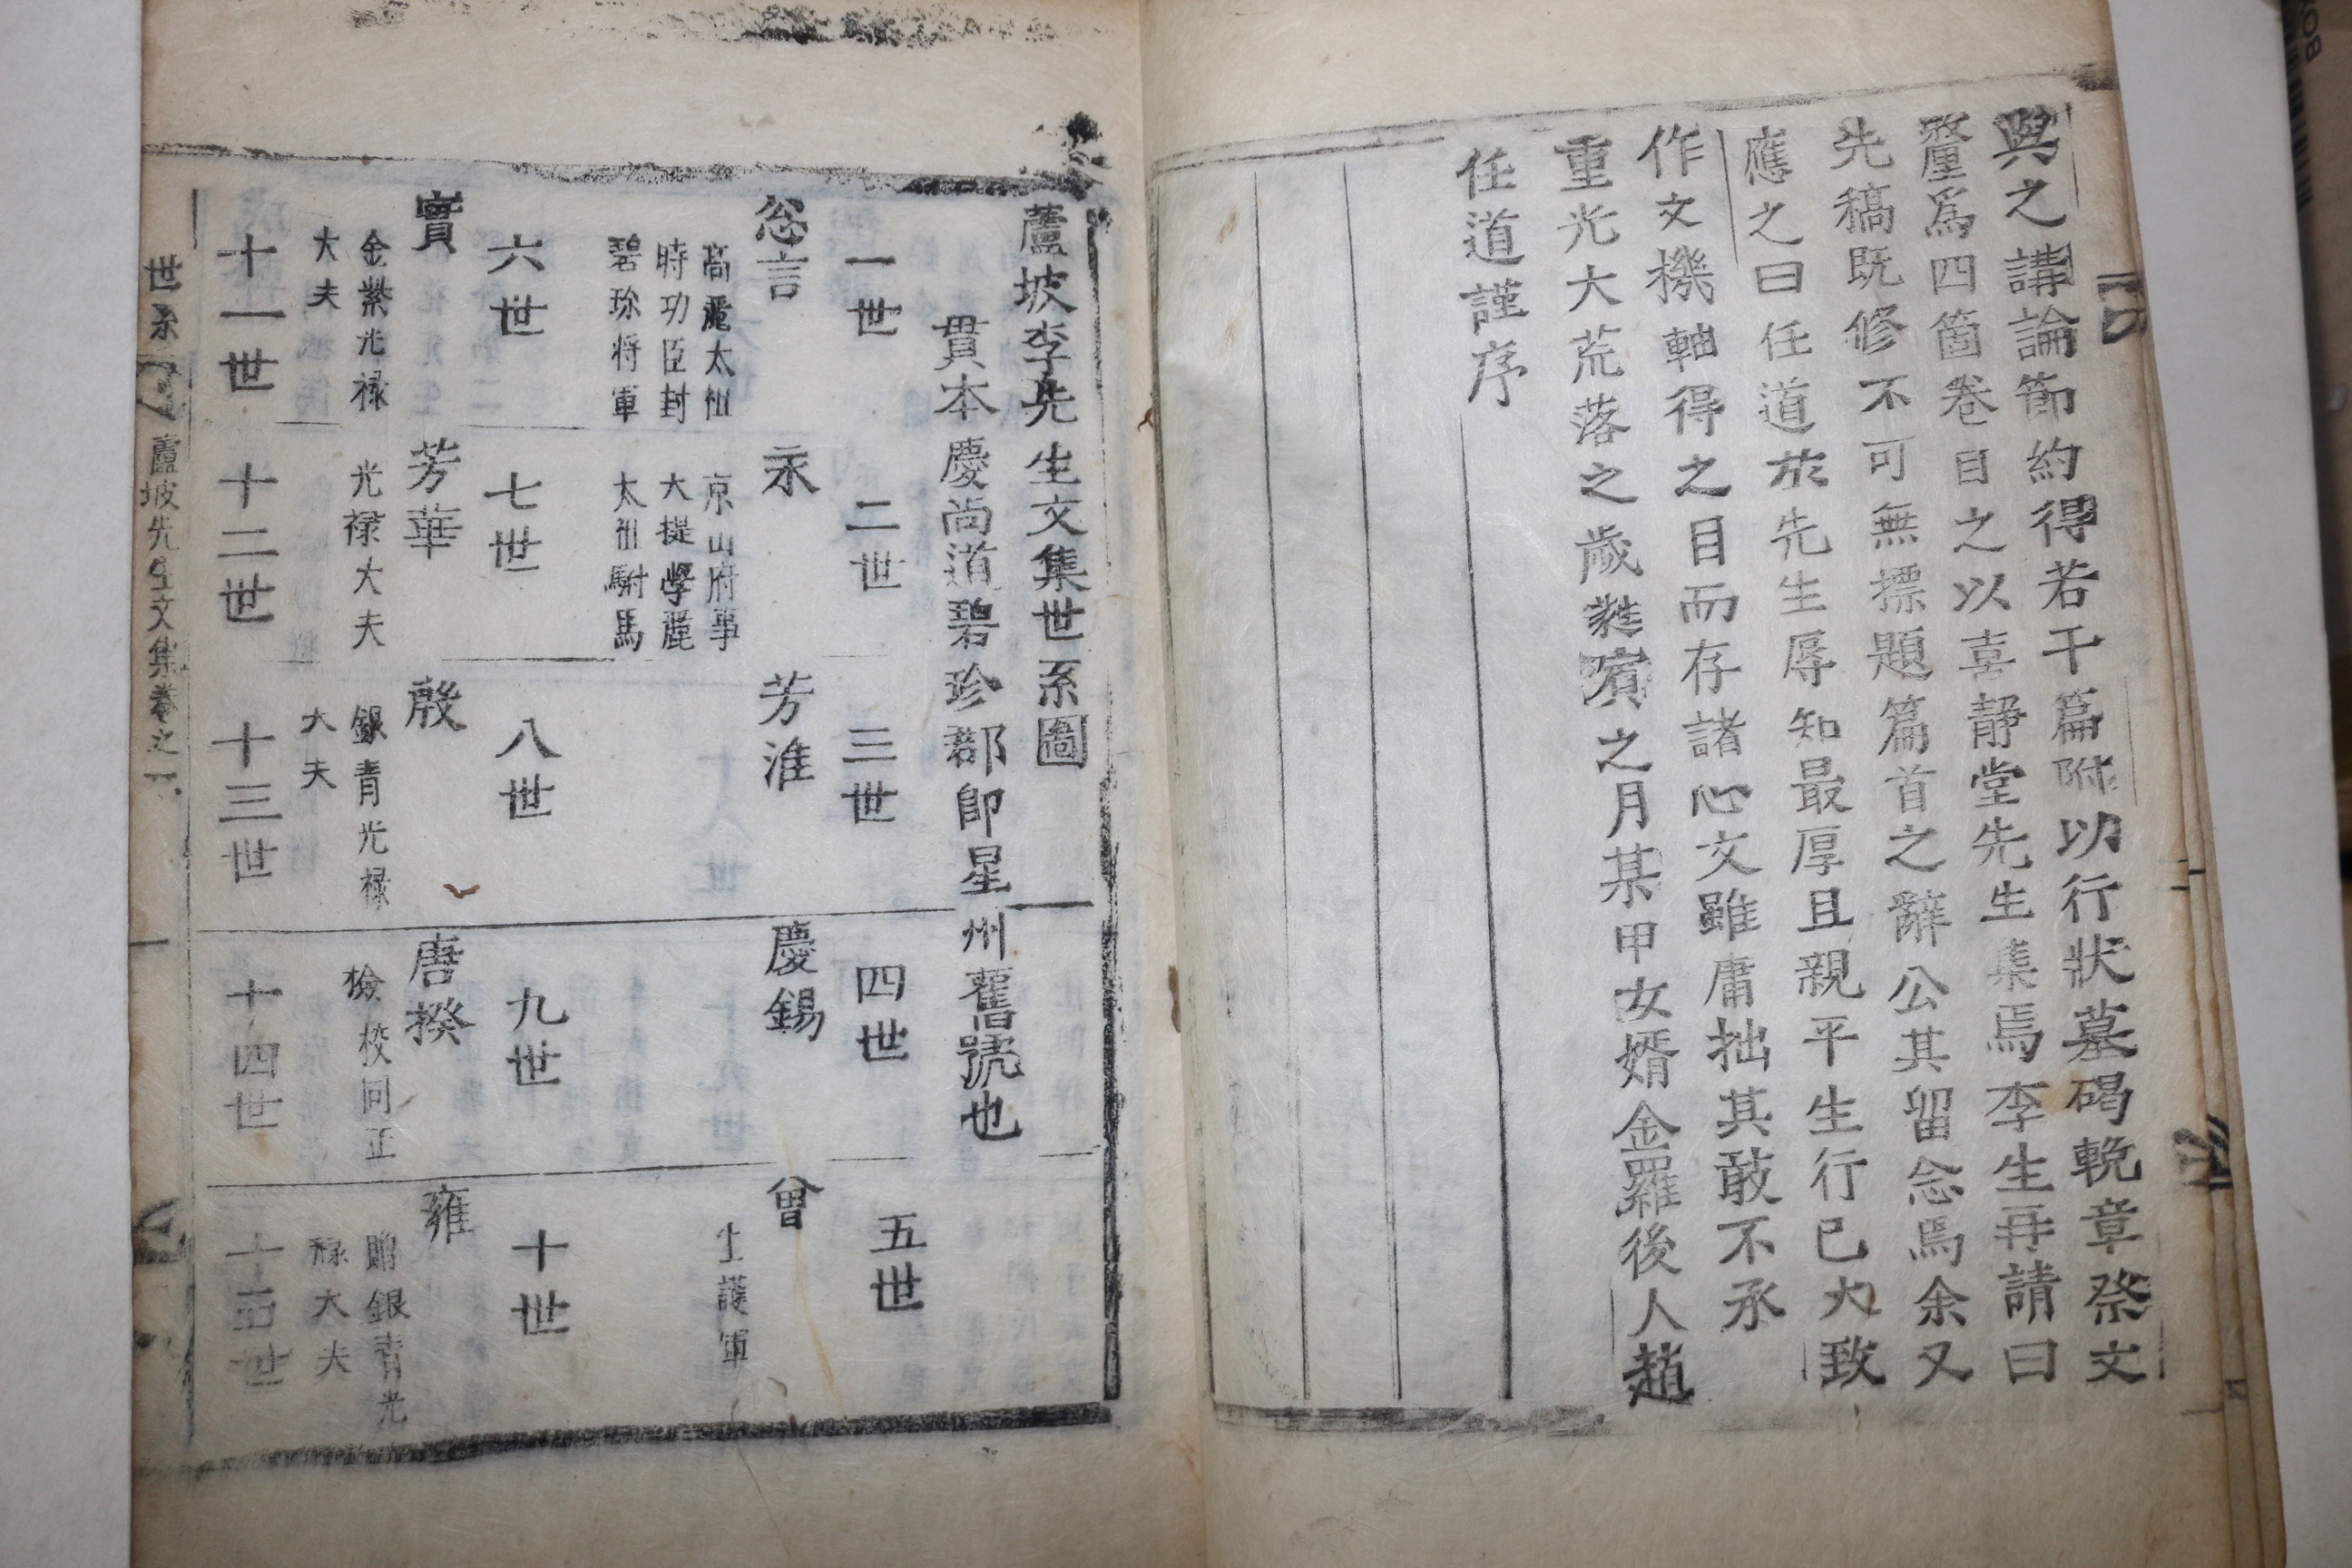 與之講論節約得若干篇附以行狀墓碣輓章祭文
釐爲四箇卷目之以喜靜堂先生集焉李生再請曰
先稿既修不可無標題篇首之辭公其留念焉余又
應之曰任道於先生辱知最厚且親平生行已大致
作文機軸得之目而存諸心文雖庸拙其敢不承
重光大荒落之歲蕤賓之月某甲女婿金羅後人趙
任道謹序
蘆坡李先生文集世系圖
貫本慶尚道碧珍郡卽星州舊號也
一世 二世 三世 四世 五世
忩言 永 芳淮 慶錫 曾
高麗太祖
時功臣封
碧珎将軍
京山府事
大提學麗
太祖駙馬
上護軍
六世 七世 八世 九世 十世
實 芳華 殷 唐揆 雍
金紫光禄
大夫
光禄大夫
銀青光禄
大夫
撿校同正
贈銀青光
禄大夫
十一世 十二世 十三世 十四世 十五世
世系 蘆坡先生文集卷之一